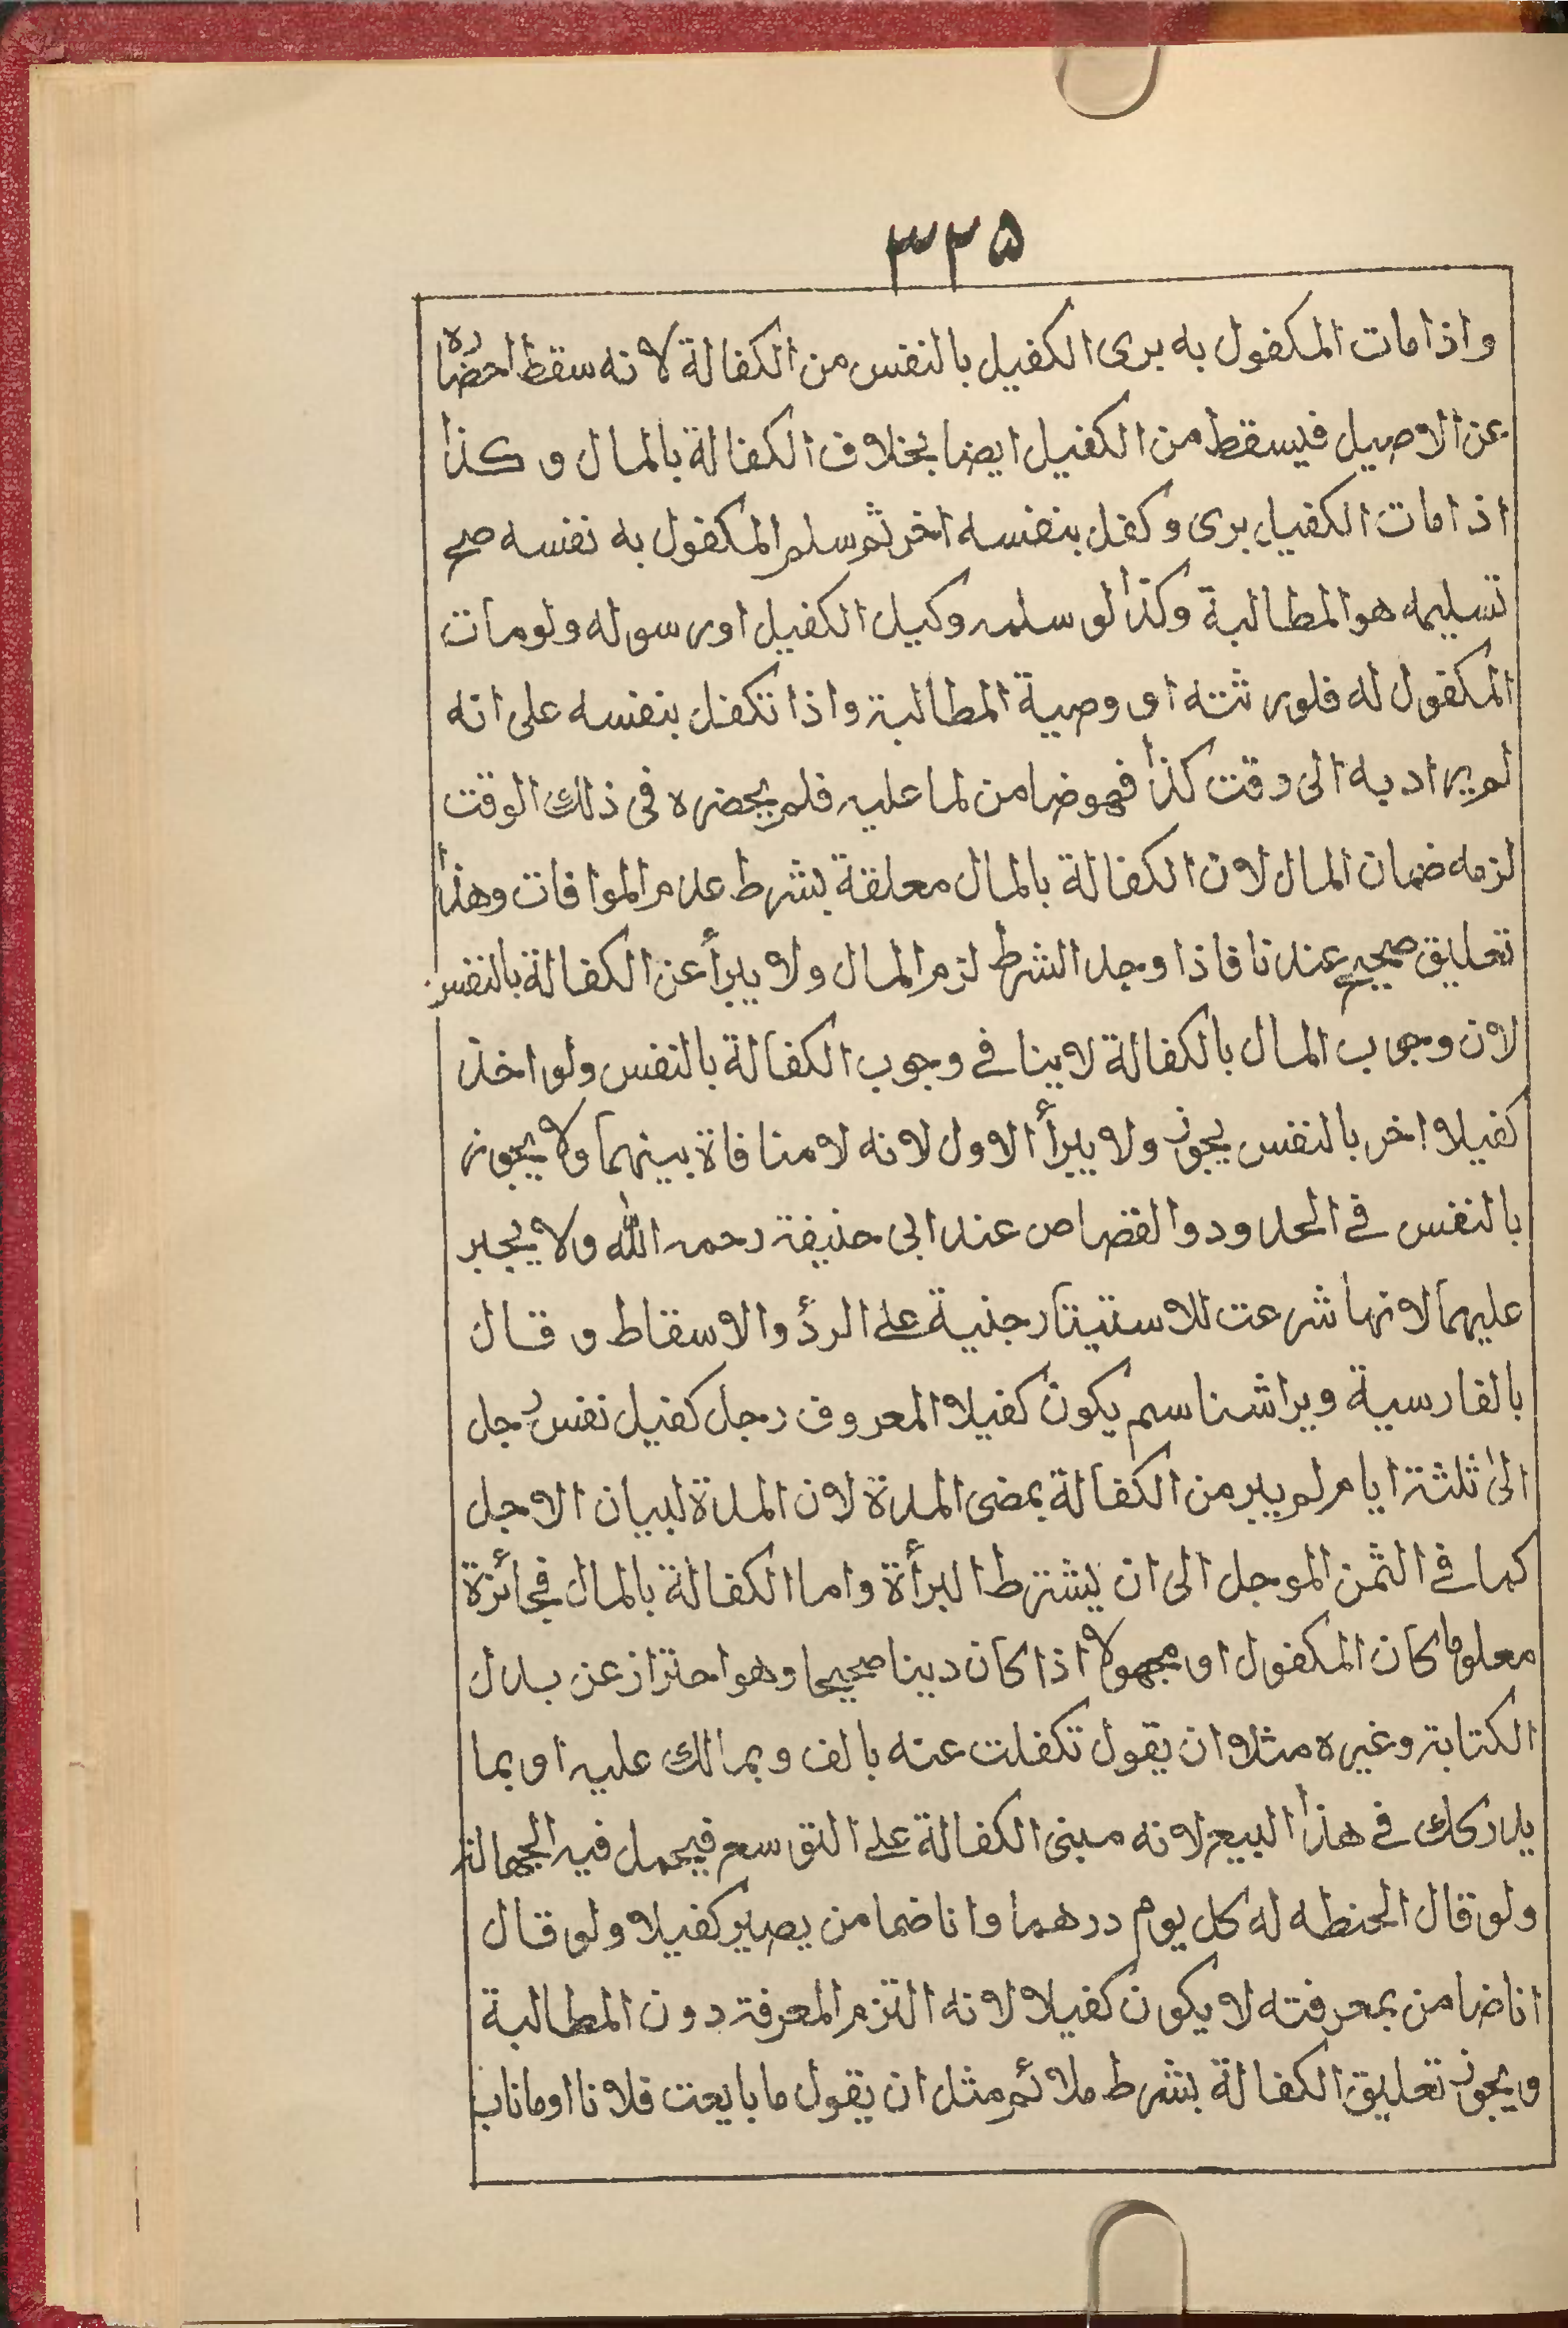 ٣٢٥
واذا مات المكفول به برى الكفيل بالنفس من الكفالة لانه سقط احضاره
عن الاصيل فيسقط من الكفيل ايضا بخلاف الكفالة بالمال و كذا
اذا مات الكفيل برى وكفل بنفسه اخر ثم سلم المكفول به نفسه صح
تسليمه هو المطالبة وكذا لو سلمه وكيل الكفيل او رسوله ولو مات
المكفول له فلورثته او وصية المطالبة واذا تكفل بنفسه على انه
لم يراد به الى وقت كذا فهو ضامن لما عليه فلم يحضره فى ذلك الوقت
لزمه ضمان المال لان الكفالة بالمال معلقة بشرط عدم الموافات وهذا
تعليق صحيح عندنا فاذا وجد الشرط لزم المال ولا يبرأ عن الكفالة بالنفس
لان وجوب المال بالكفالة لاينافے وجوب الكفالة بالنفس ولو اخذ
كفيلا اخر بالنفس يجوز ولا يبرأ الاول لانه لا منافاة بينهما ولا يجوز
بالنفس فے الحدود والقصاص عند ابى حنيفة رحمه الله ولا يجبر
عليهما لانها شرعت للاستيتار جنية علے الردؤ والاسقاط و قال
بالفارسية ويراشناسم يكون كفيلا المعروف رجل كفيل نفس رجل
الى ثلثة ايام لم يبر من الكفالة بمضى المدة لان المدة لبيان الاجل
كما فے الثمن الموجل الى ان يشترط البرأة واما الكفالة بالمال فجائزة
معلوما كان المكفول او مجهولا اذا كان دينا صحيحا وهو احتراز عن بدل
الكتابة وغيره مثلا ان يقول تكفلت عنه بالف وبمالك عليه او بما
يدركك فے هذا البيع لانه مبنى الكفالة علے التوسع فيحمل فيه الجهالة
ولو قال الحنطه له كل يوم درهما وانا ضمامن يصير كفيلا ولو قال
انا ضامن بمعرفته لا يكون كفيلا لانه التزم المعرفة دون المطالبة
ويجوز تعليق الكفالة بشرط ملائم مثل ان يقول ما بايعت فلانا اوماناب